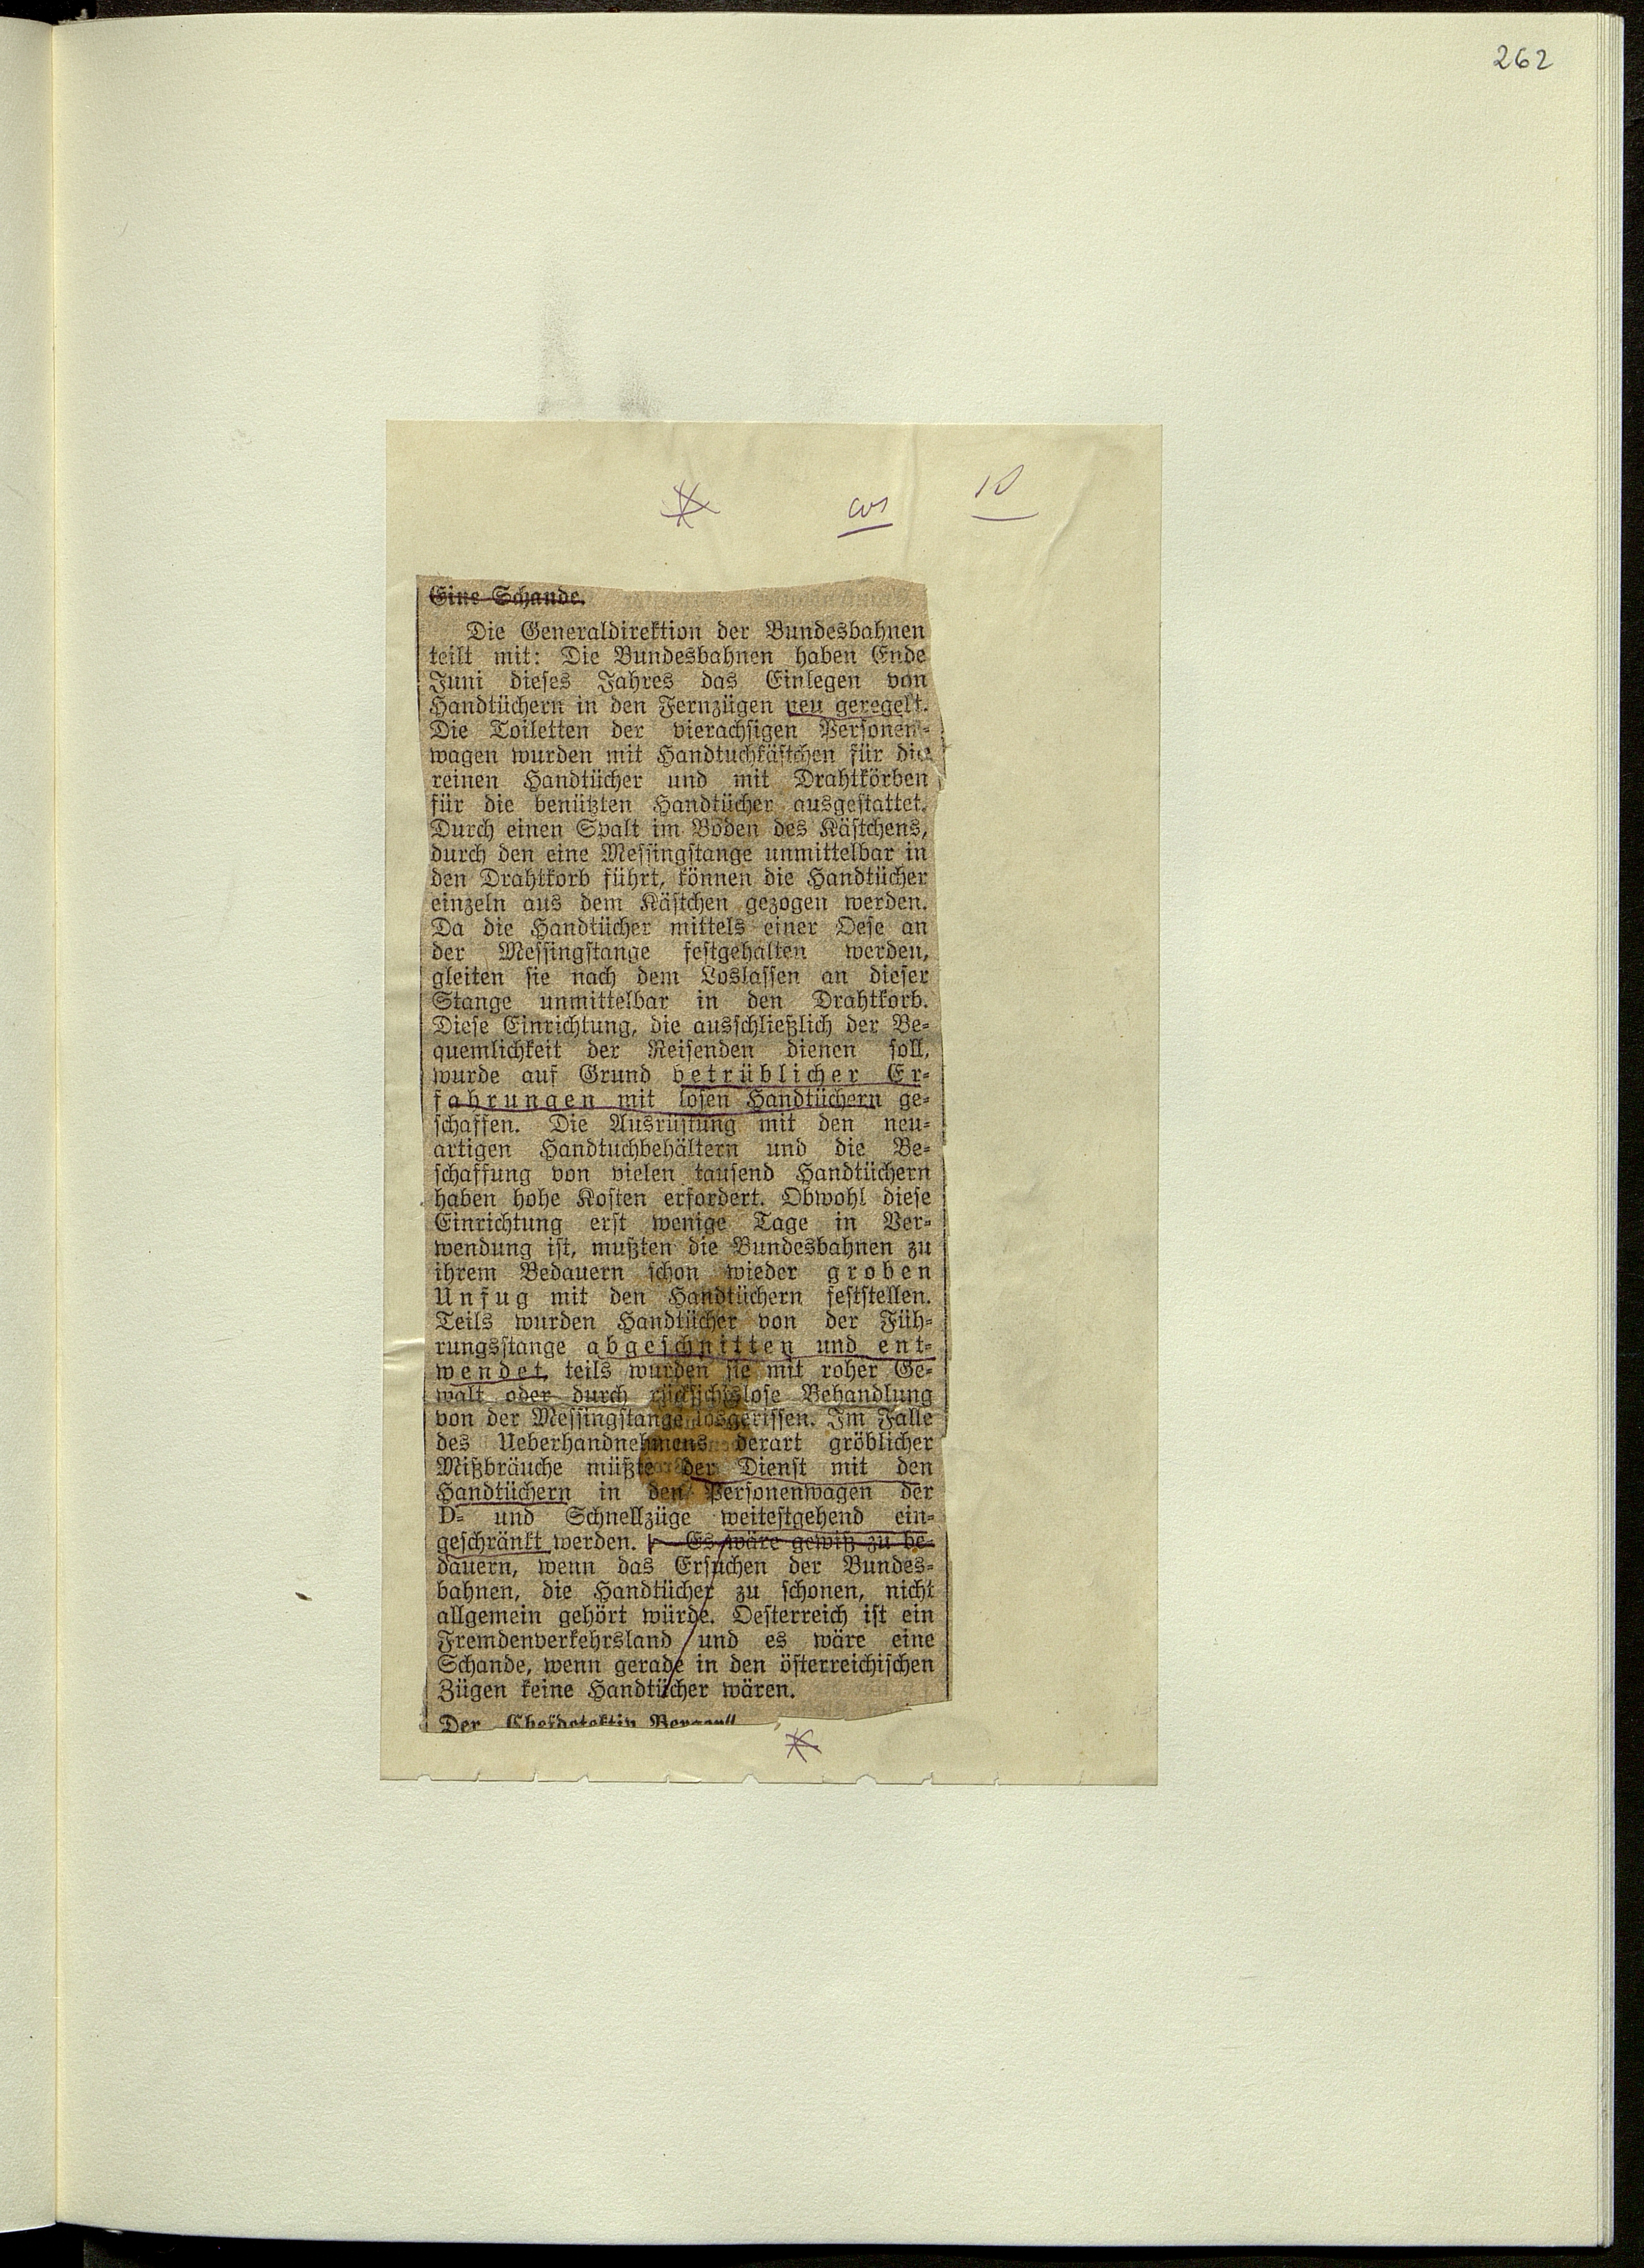 262
Eine Schande.
Die Generaldirektion der Bundesbahnen
teilt mit: Die Bundesbahnen haben Ende
Juni dieses Jahres das Einlegen von
Handtüchern in den Fernzügen neu geregelt.
Die Toiletten der vierachsigen Personen-
wagen wurden mit Handtuchkästchen für die
reinen Handtücher und mit Drahtkörben
für die benützten Handtücher ausgestattet.
Durch einen Spalt im Boden des Kästchens,
durch den eine Messingstange unmittelbar in
den Drahtkorb führt, können die Handtücher
einzeln aus dem Kästchen gezogen werden.
Da die Handtücher mittels einer Oese an
der Messingstange festgehalten werden,
gleiten sie nach dem Loslassen an dieser
Stange unmittelbar in den Drahtkorb.
Diese Einrichtung, die ausschließlich der Be-
quemlichkeit der Reisenden dienen soll,
wurde auf Grund betrüblicher Er-
fahrungen mit losen Handtüchern ge-
schaffen. Die Ausrüstung mit den neu-
artigen Handtuchbehältern und die Be-
schaffung von vielen tausend Handtüchern
haben hohe Kosten erfordert. Obwohl diese
Einrichtung erst wenige Tage in Ver-
wendung ist, mußten die Bundesbahnen zu
ihrem Bedauern schon wieder groben
Unfug mit den Handtüchern feststellen.
Teils wurden Handtücher von der Füh-
rungsstange abgeschnitten und ent-
wendet, teils wurden sie mit roher Ge-
walt oder durch rücksichtslose Behandlung
von der Messingstange losgerissen. Im Falle
des Ueberhandnehmens derart gröblicher
Mißbräuche müßte der Dienst mit den
Handtüchern in den Personenwagen der
D- und Schnellzüge weitestgehend ein-
geschränkt werden. Es wäre gewiß zu be-
dauern, wenn das Ersuchen der Bundes-
bahnen, die Handtücher zu schonen, nicht
allgemein gehört würde. Oesterreich ist ein
Fremdenverkehrsland und es wäre eine
Schande, wenn gerade in den österreichischen
Zügen keine Handtücher wären.
Der Chefdetektiv